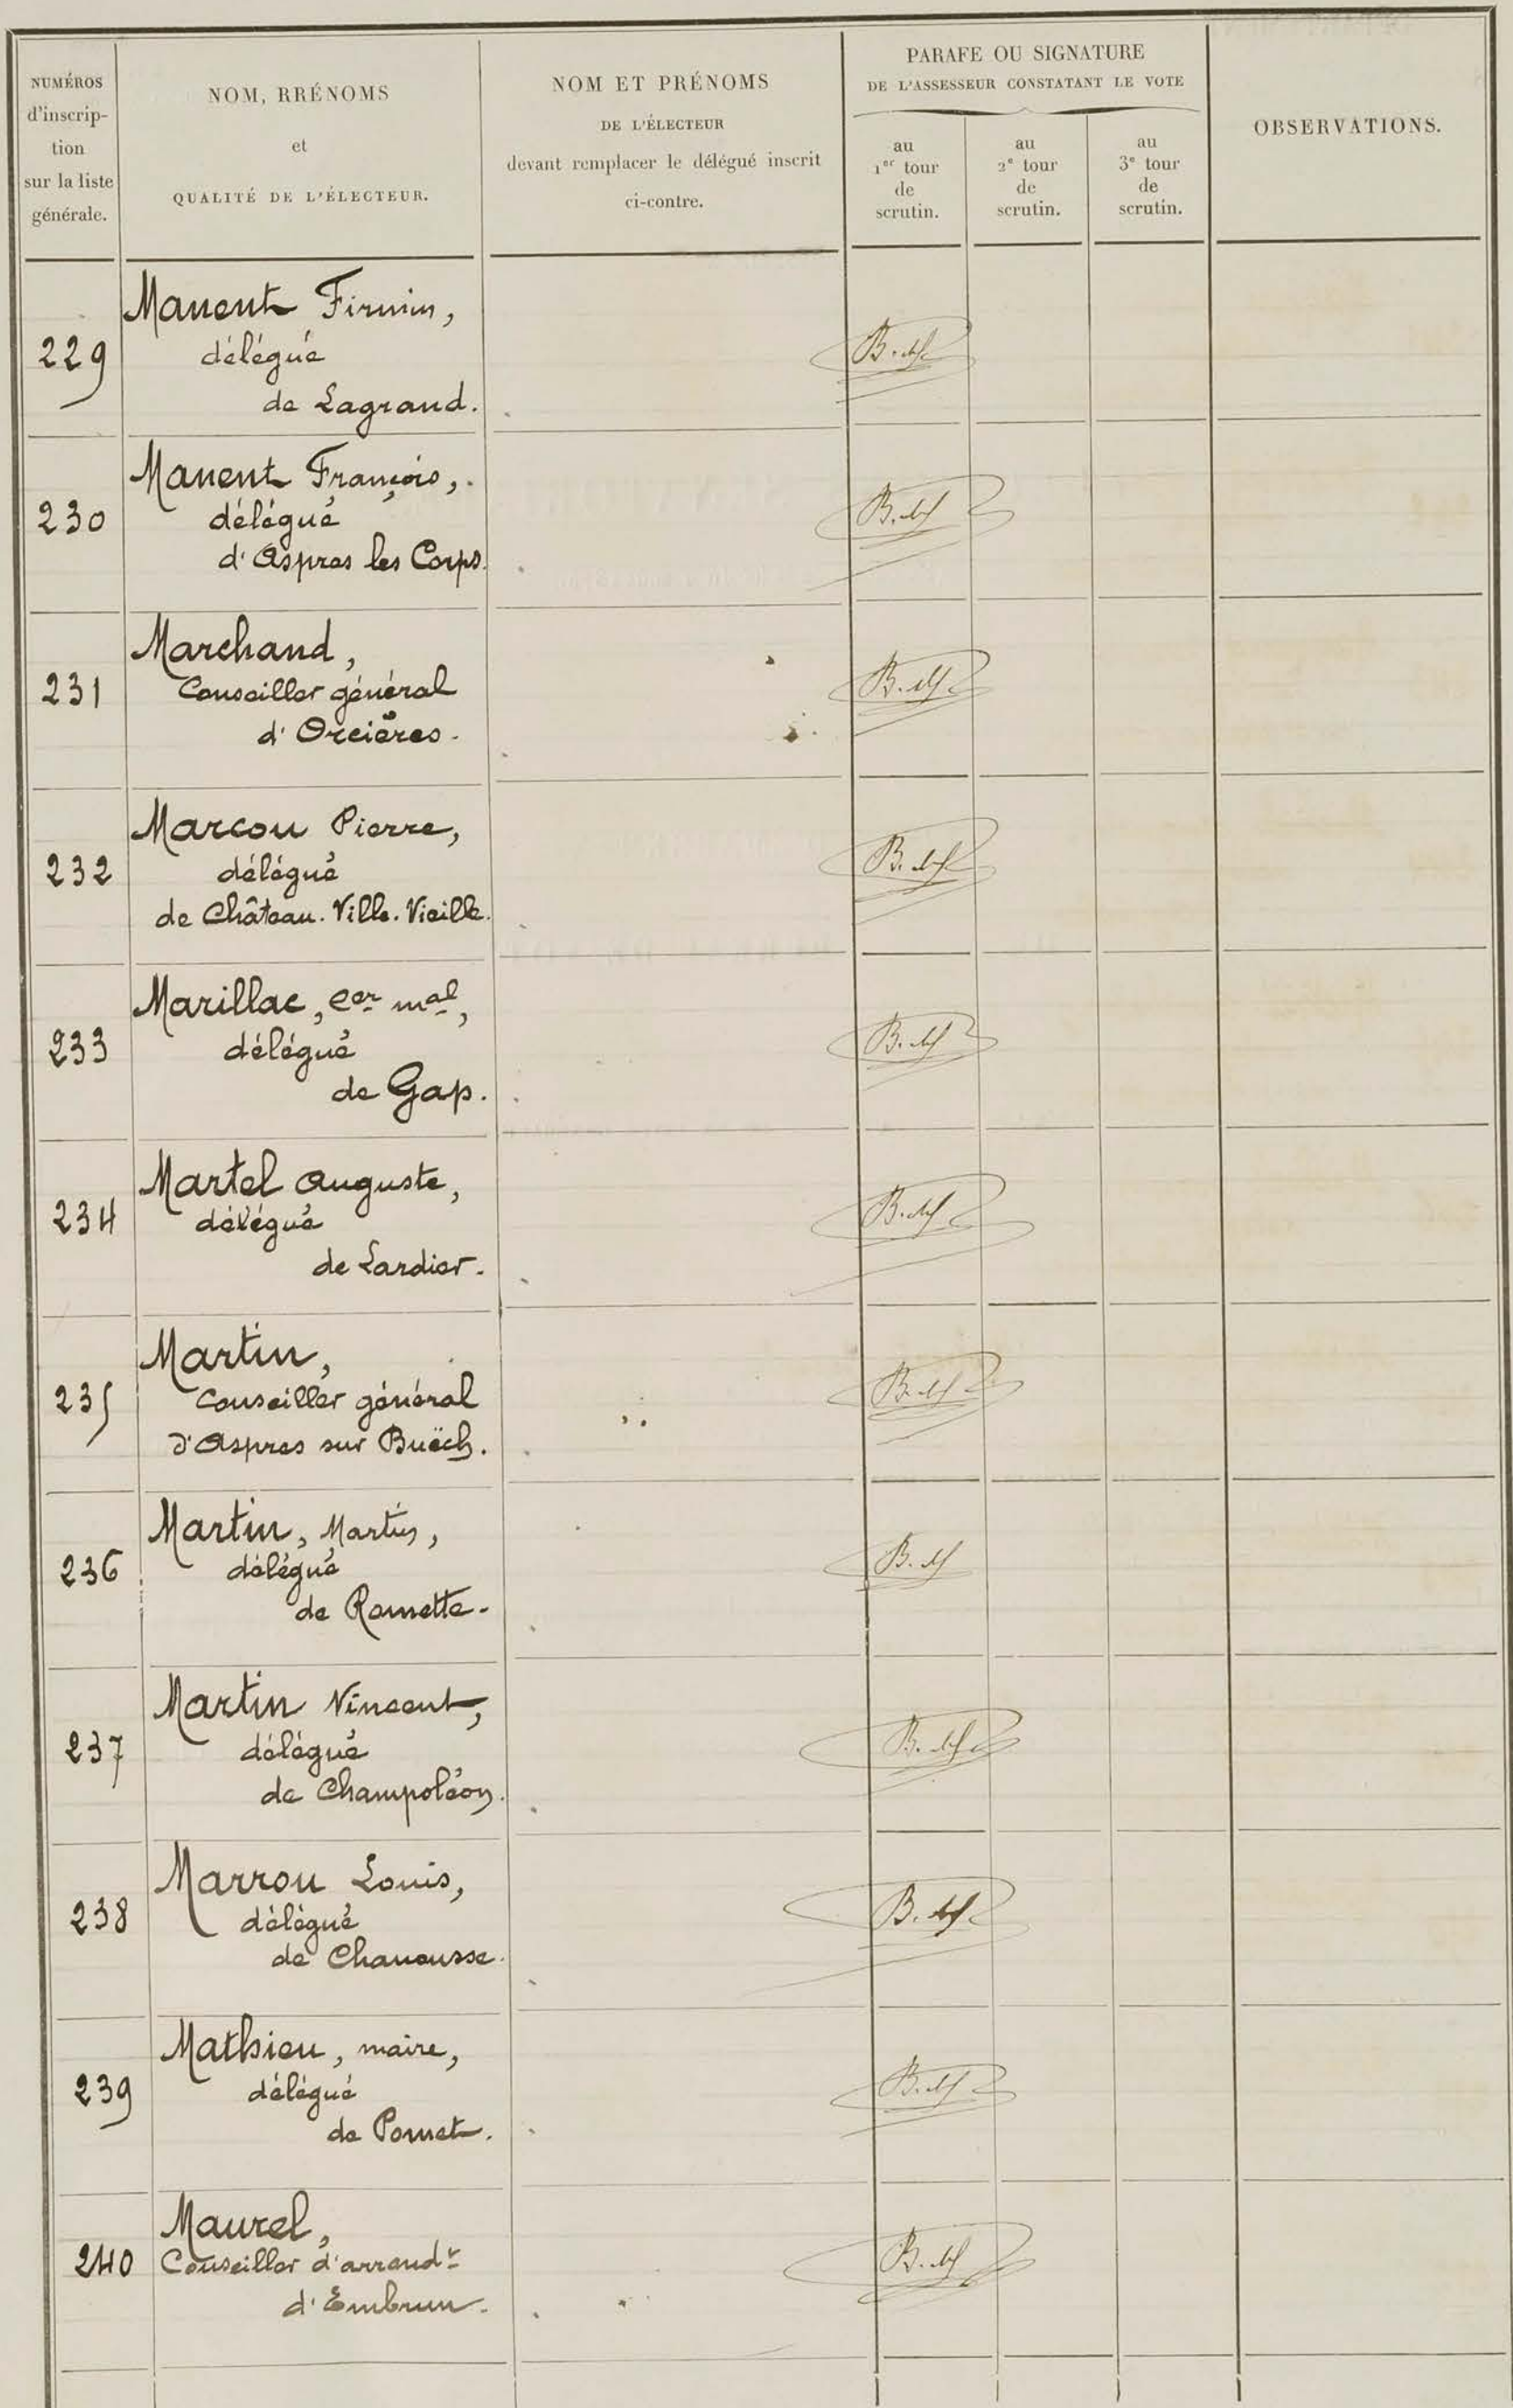 NUMÉROS
d'inscrip-
tion
sur la liste
générale.
NOM, RRÉNOMS
et
QUALITÉ DE L'ÉLECTEUR.
NOM ET PRÉNOMS
DE L'ÉLECTEUR
devant remplacer le délégué inscrit
ci-contre.
PARAFE OU SIGNATURE
DE L'ASSESSEUR CONSTATANT LE VOTE
au
1er tour
de
scrutin.
au
2e tour
de
scrutin.
au
3e tour
de
scrutin.
OBSERVATIONS.
Manent Firmin,
229 délégué
de Lagrand.
Manent François,
230 délégué
d'Aspres les Corps.
Marchand,
231 Conseiller général
d'Orcières.
Marcou Pierre,
232 délégué
de Château. Ville. Vieille.
Marillac, cer mal,
233 délégué
de Gap.
Martel Auguste,
234 délégué
de Lardier.
Martin,
235 Conseiller général
d'Aspres sur Buëch.
Martin, Martin,
236 délégué
de Romette.
Martin Vincent,
237 délégué
de Champoléon.
Marrou Louis,
238 délégué
de Chanousse.
Mathieu, maire,
239 délégué
de Pomet.
Maurel,
240 Conseiller d'arrondt
d'Embrun.